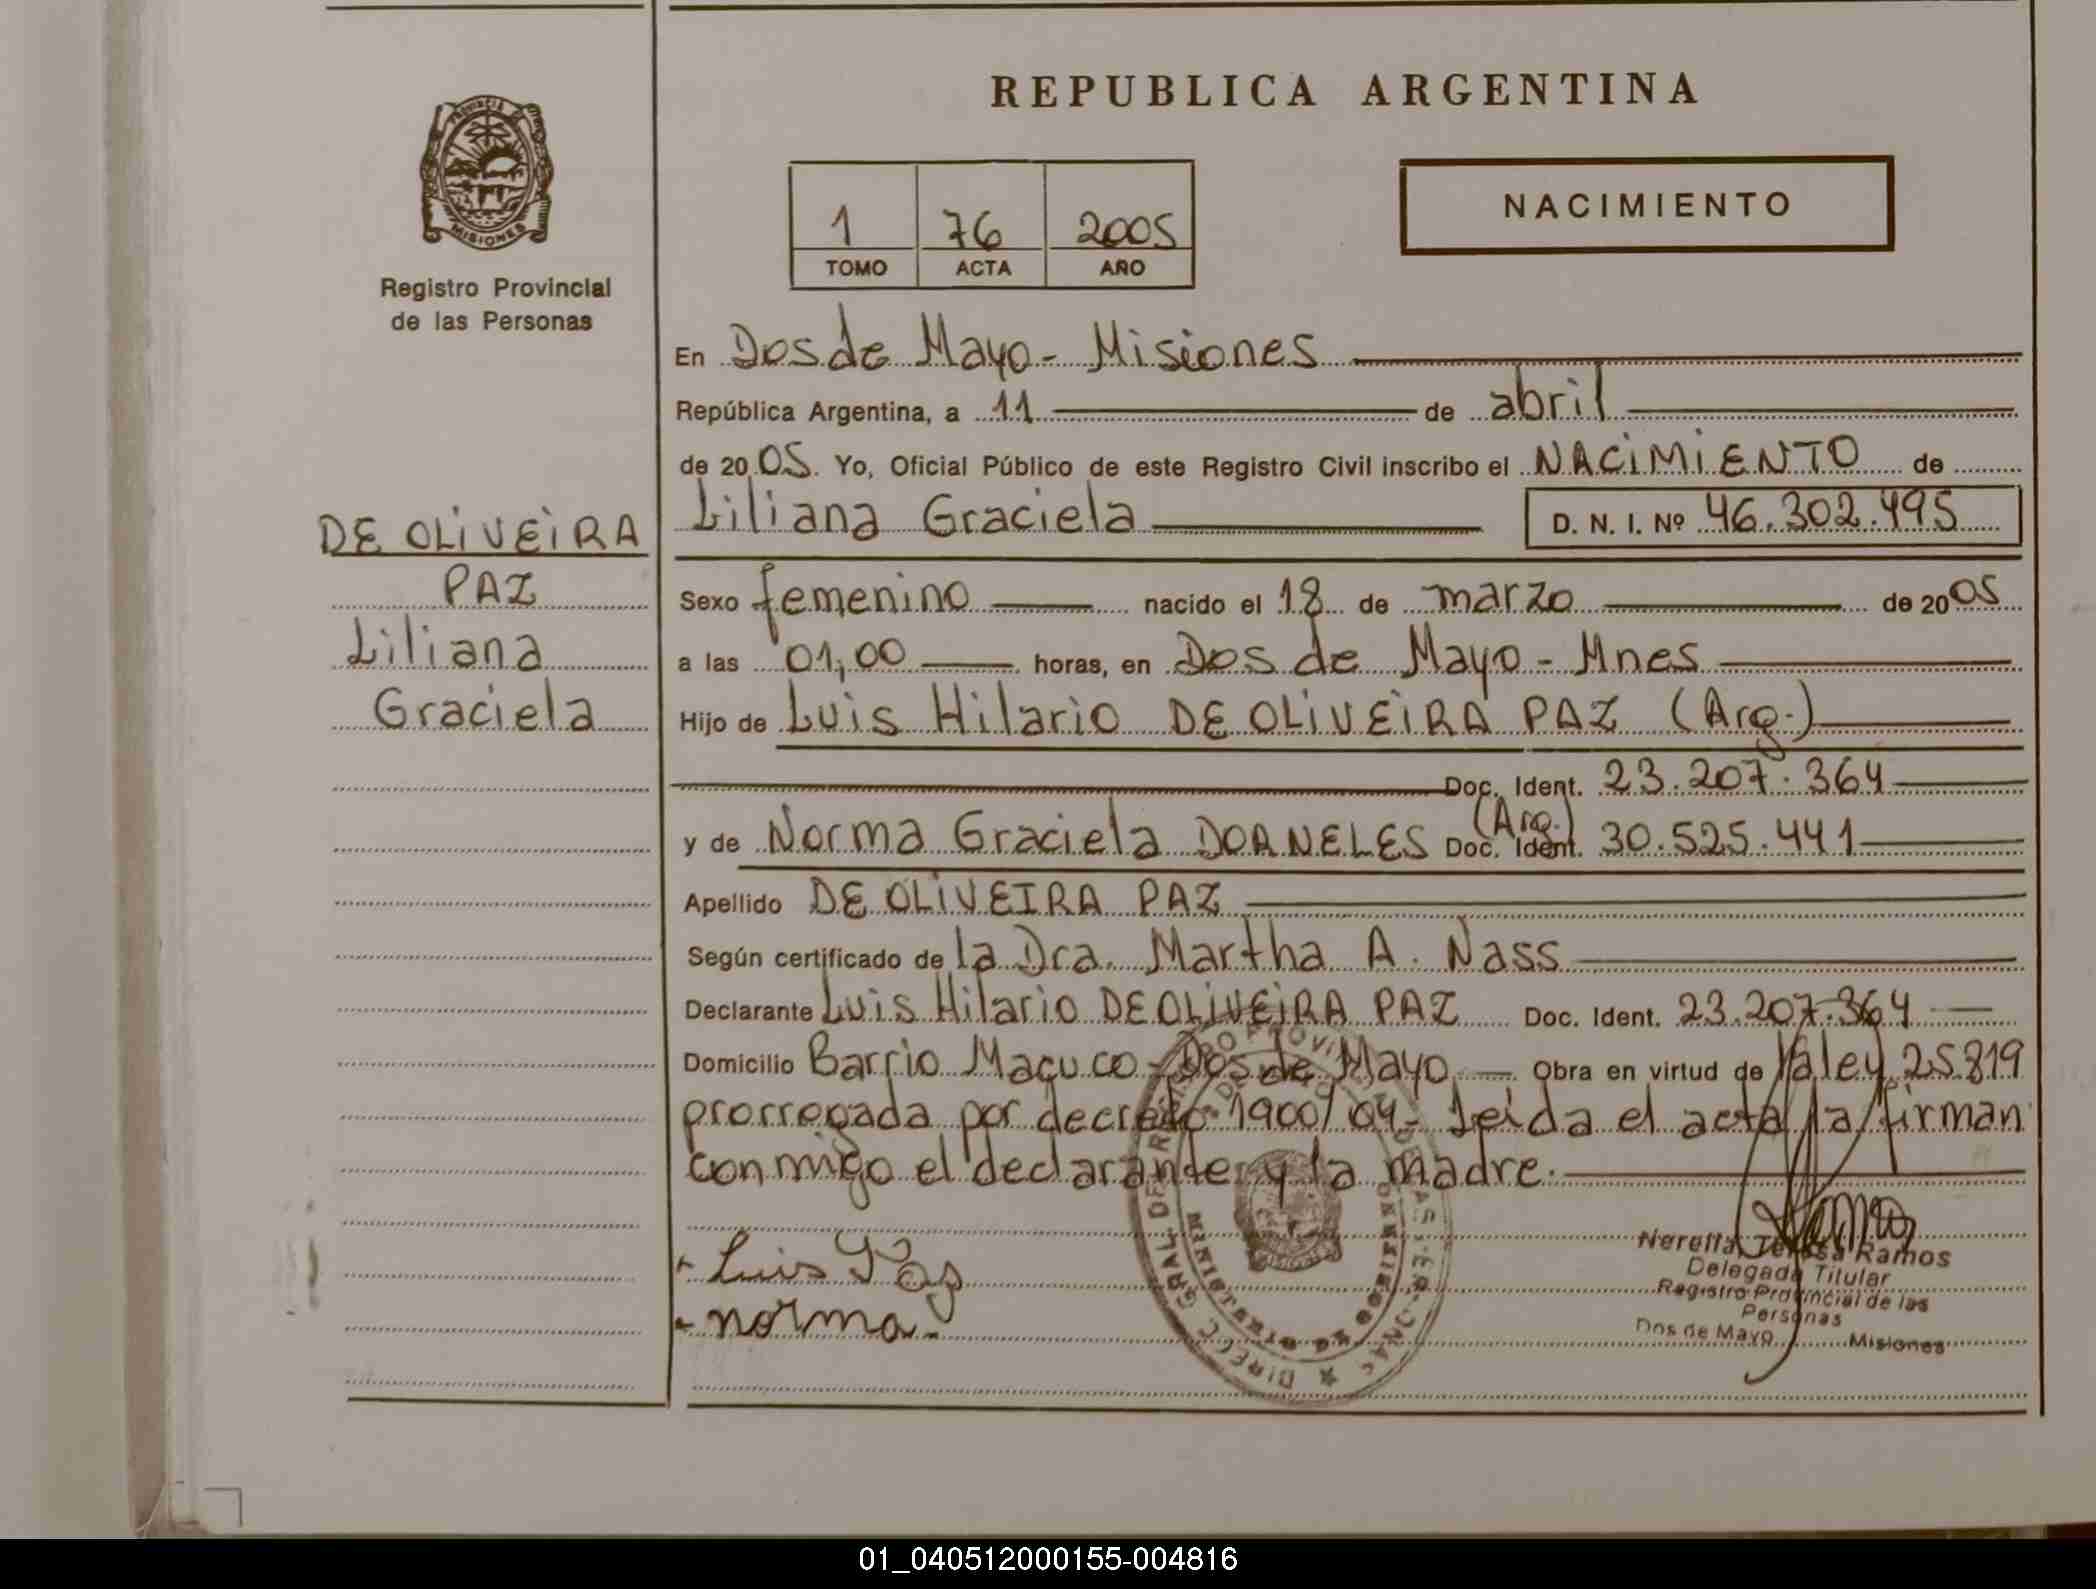 REPUBLICA ARGENTINA
PROVINCIA DE MISIONES
Registro Provincial
de las Personas
NACIMIENTO
1 76 2005
TOMO ACTA AÑO
En Dos de Mayo - Misiones
República Argentina, a 11 de abril
de 2005. Yo, Oficial Público de este Registro Civil inscribo el NACIMIENTO de
Liliana Graciela D. N. I. Nº 46.302.495
DE OLIVEIRA
PAZ
Liliana
Graciela
Sexo femenino nacido el 18 de marzo de 2005
a las 01,00 horas, en Dos de Mayo - Mnes
Hijo de Luis Hilario DE OLIVEIRA PAZ (Arg.)
Doc. Ident. 23.207.364
y de Norma Graciela DORNELES (Arg.) Doc. Ident. 30.525.441
Apellido DE OLIVEIRA PAZ
Según certificado de la Dra. Martha A. Nass
Declarante Luis Hilario DE OLIVEIRA PAZ Doc. Ident. 23.207.364
Domicilio Barrio Macuco - Dos de Mayo Obra en virtud de la ley 25819
prorrogada por decreto 1900/04. Leída el acta la firman
conmigo el declarante y la madre.
Luis Paz
norma
Nerella Teresa Ramos
Delegada Titular
Registro Provincial de las
Personas
Dos de Mayo Misiones
01_040512000155-004816